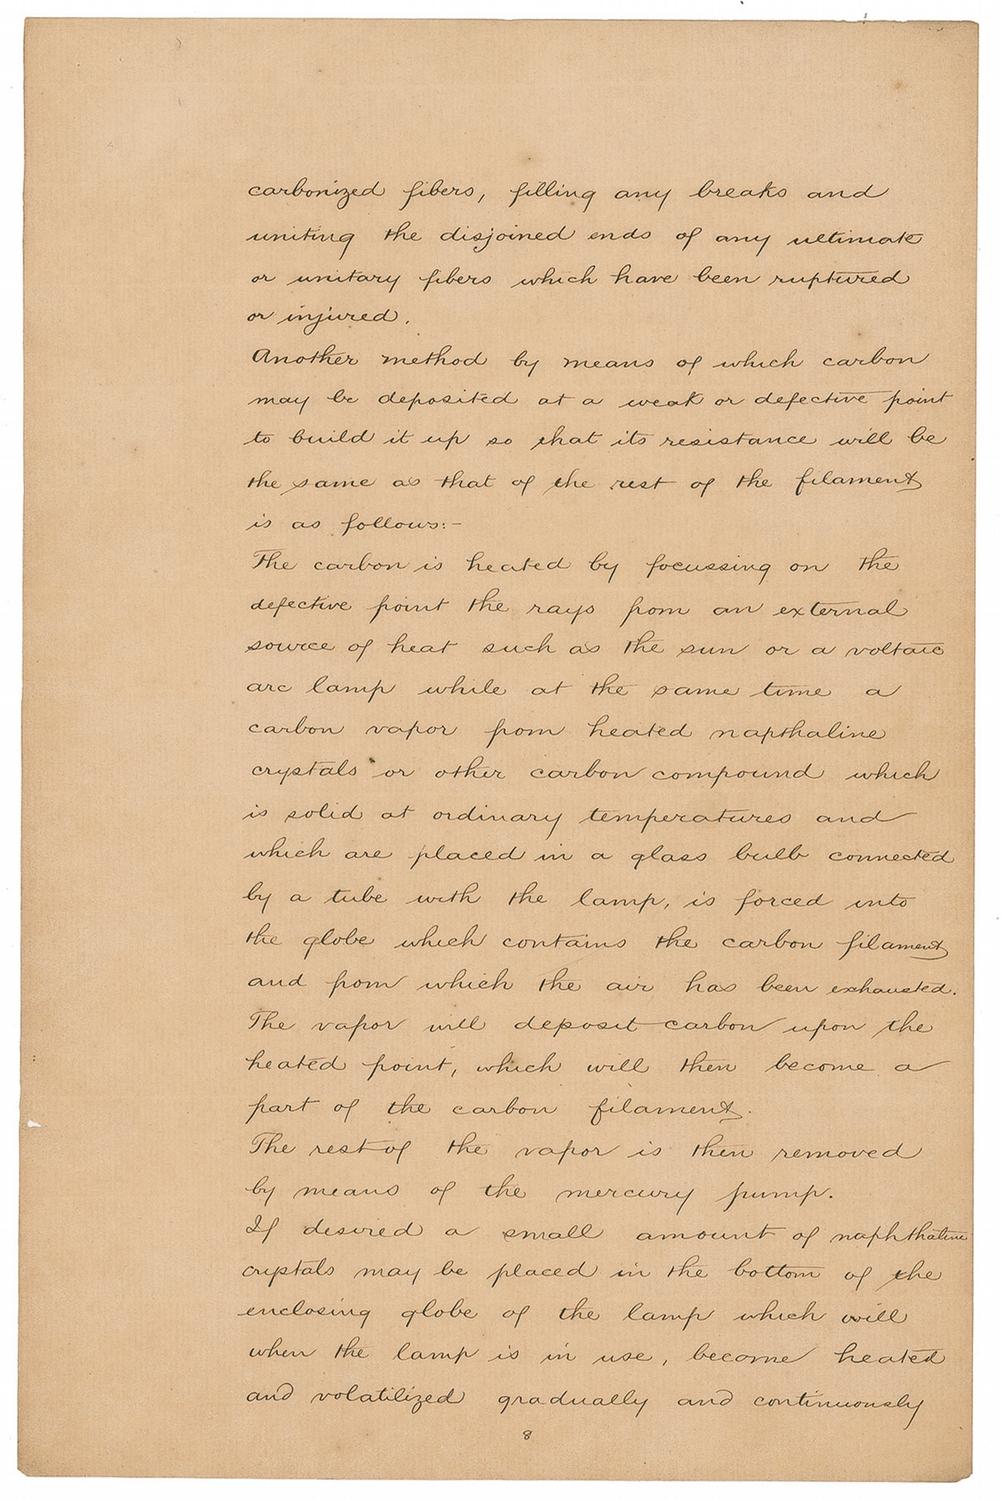 carbonized fibers, filling any breaks and
uniting the disjoined ends of any ultimate
or unitary fibers which have been ruptured
or injured.
Another method by means of which carbon
may be deposited at a weak or defective point
to build it up so that its resistance will be
the same as that of the rest of the filament
is as follows:-
The carbon is heated by focussing on the
defective point the rays from an external
source of heat such as the sun or a voltaic
arc lamp while at the same time a
carbon vapor from heated napthaline
crystals or other carbon compound which
is solid at ordinary temperatures and
which are placed in a glass bulb connected
by a tube with the lamp, is forced into
the globe which contains the carbon filament
and from which the air has been exhausted.
The vapor will deposit carbon upon the
heated point, which will then become a
part of the carbon filament.
The rest of the vapor is then removed
by means of the mercury pump.
If desired a small amount of naphthaline
crystals may be placed in the bottom of the
enclosing globe of the lamp which will
when the lamp is in use, become heated
and volatilized gradually and continuously
8